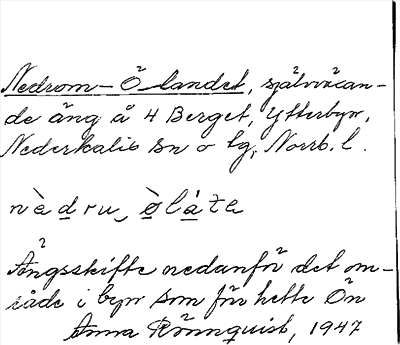 Nedrom-Ölandet, självväxan-
de äng å 4 Berget, Ytterbyn,
Nederkalix sn o tg, Norrb. l.
nèdru ølate
Ängsskifte nedanför det om-
råde i byn som för hette Ön
Anna Rönnquist, 1947